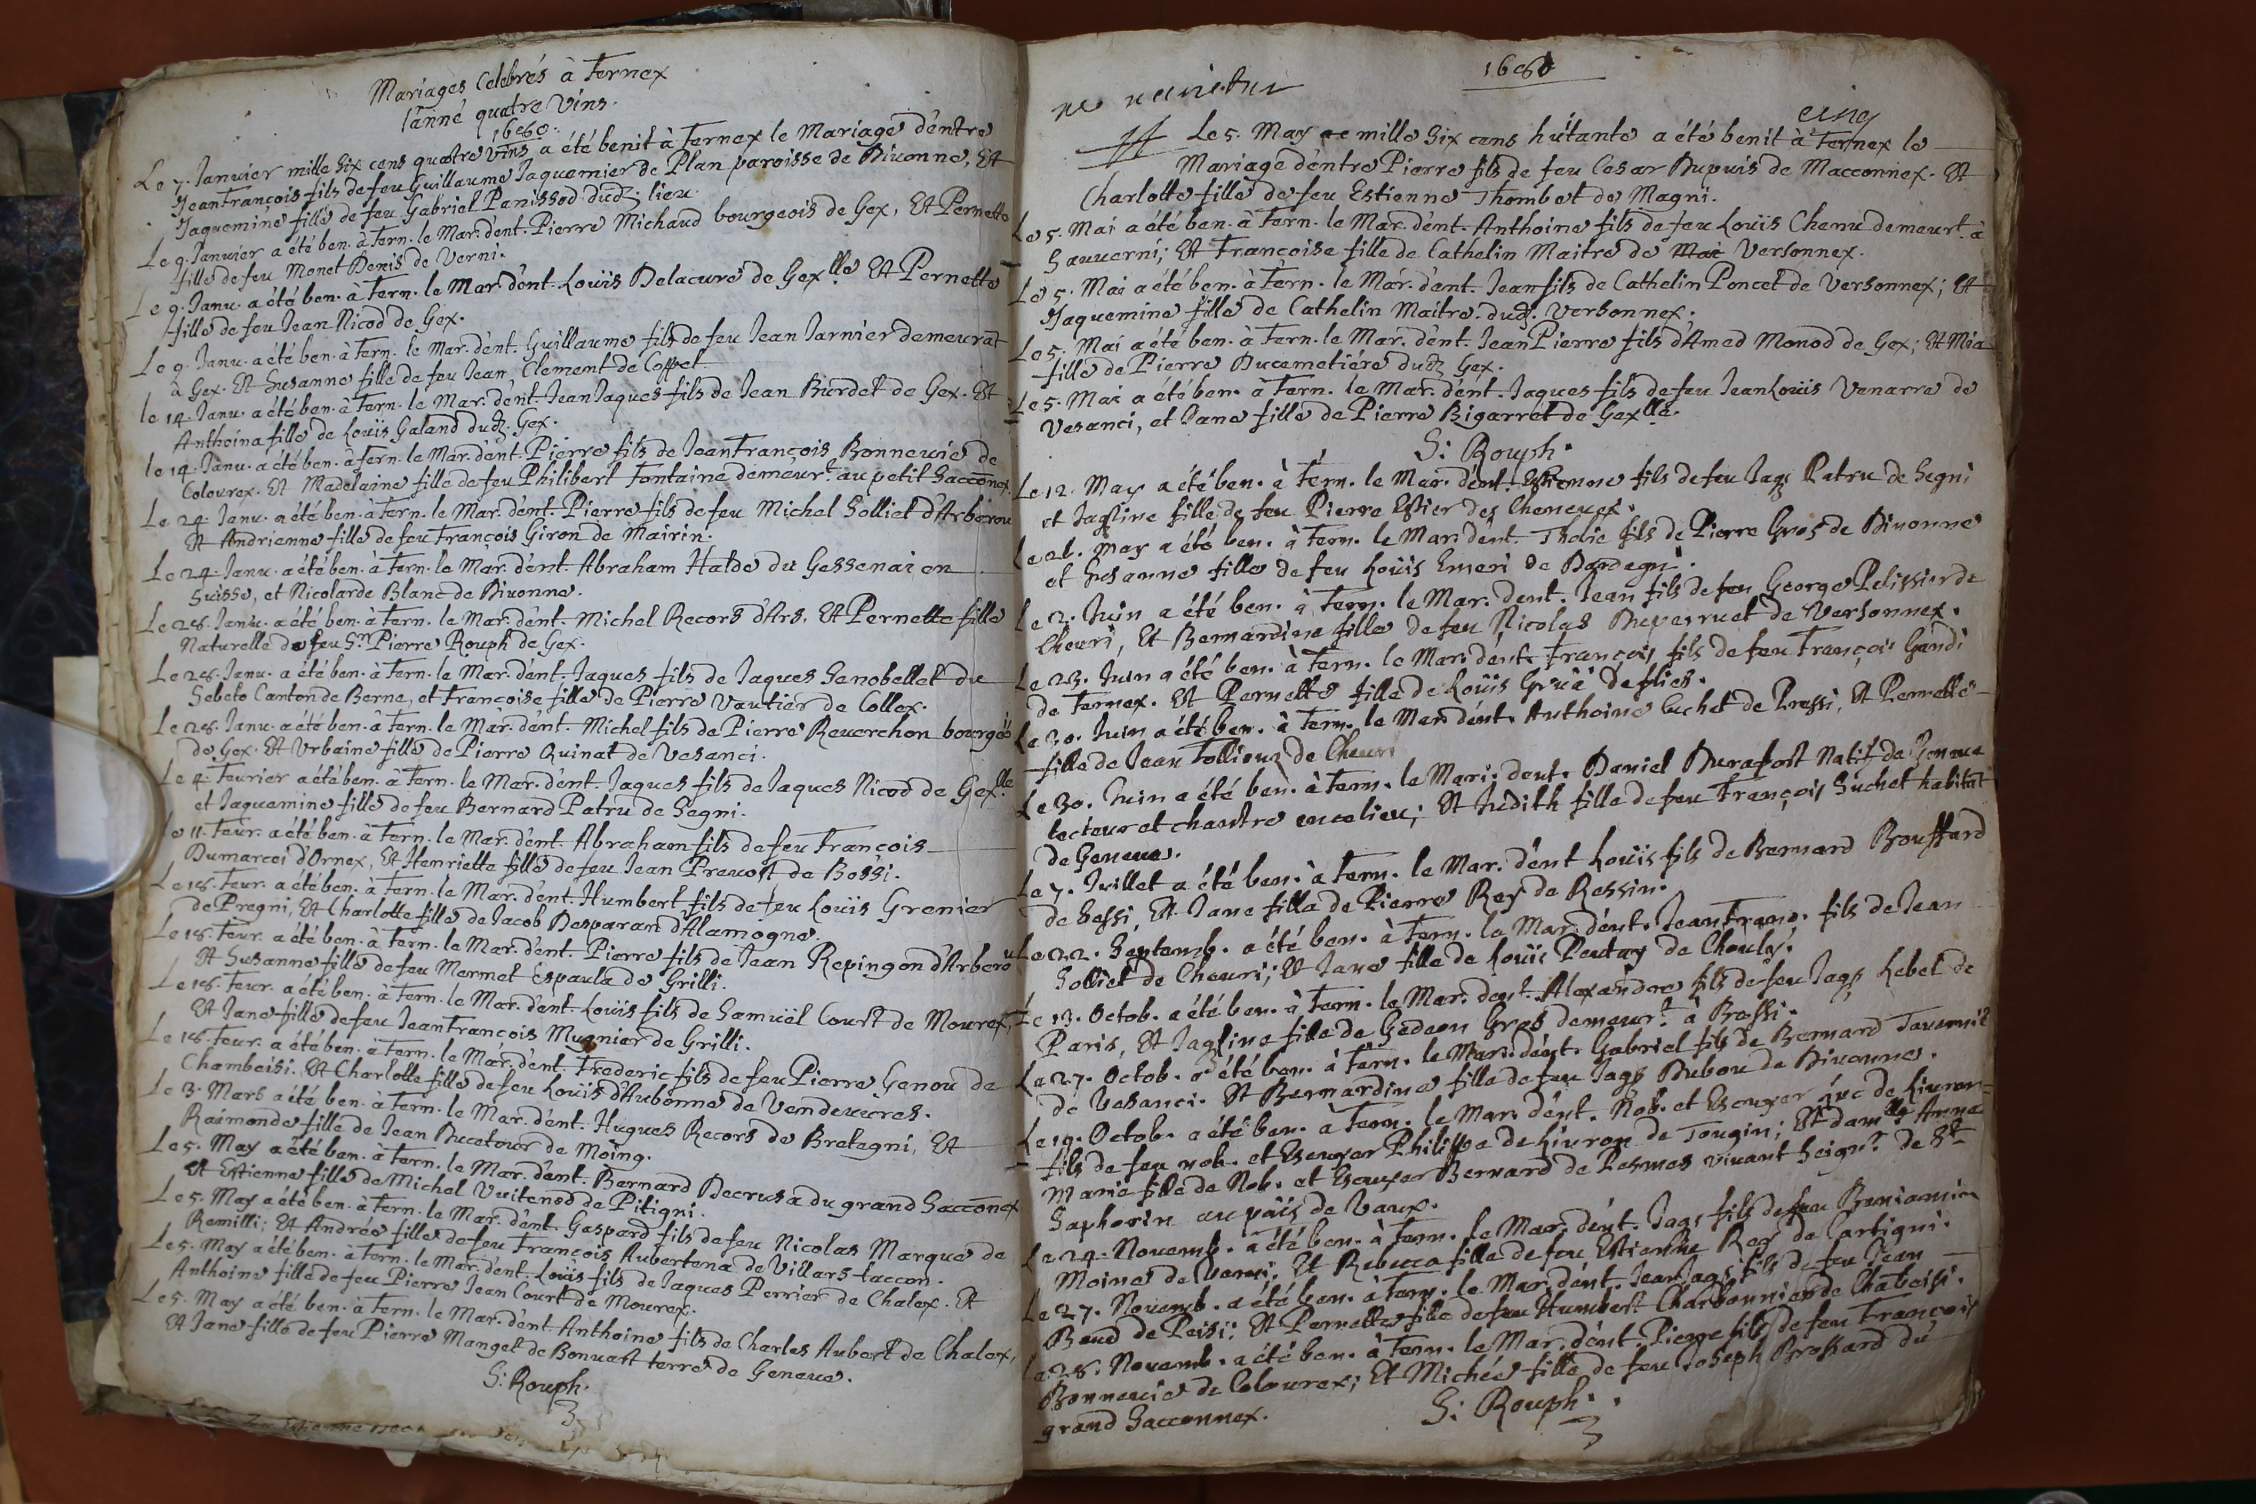 Mariages Celebrés à Fernex
l'anné quatre Vins.
1680.
Le 7. Ianvier mille Six cens quatre vins a été benit à Fernex le Mariage d'entre
Jean François fils de feu Guillaume Jaquemier de Plan paroisse de Diuonne, Et
Jaquemine fille de feu Gabriel Panissod dudt. lieu.
Le 9. Ianvier a été ben. à Fern. le Mar. d'ent. Pierre Michaud bourgeois de Gex, Et Pernette
fille de feu Monet Denis de Verni.
Le 9. Ianu. a été ben. à Fern. le Mar. d'ent. Louïs Delacure de Gex.lle Et Pernette
fille de feu Iean Nicod de Gex.
Le 9. Ianu. a été ben. à Fern. le Mar. d'ent. Guillaume fils de feu Iean Iarnier demeurat
à Gex. Et Susanne fille de feu Iean Clement de Coppet.
le 14. Ianu. a été ben. à Fern. le Mar. d'ent. Iean Iaques fils de Iean Burdet de Gex. Et
Anthoina fille de Louïs Galand dudt. Gex.
le 14. Ianu. a été ben. à Fern. le Mar. d'ent. Pierre fils de Iean François Bonneuie de
Colourex. Et Madelaine fille de feu Philibert Fontaine demeurt. au petit Sacconex.
Le 24. Ianu. a été ben. à Fern. le Mar. d'ent. Pierre fils de feu Michel Solliet d'Arberou
Et Andrienne fille de feu François Giron de Mairin.
Le 24. Ianu. a été ben. à Fern. le Mar. d'ent. Abraham Halde du Gessenai en
Suisse, et Nicolarde Blanc de Diuonne.
Le 28. Ianu. a été ben. à Fern. le Mar. d'ent. Michel Recors d'Ars, Et Pernette fille
Naturelle de feu Sr. Pierre Rouph de Gex.
Le 28. Ianu. a été ben. à Fern. le Mar. d'ent. Iaques fils de Iaques Genobellet du
Sebeto Canton de Berne, et Françoise fille de Pierre Vautier de Collex.
Le 28. Ianu. a été ben. à Fern. le Mar. d'ent. Michel fils de Pierre Reuerchon bourgeois
de Gex. Et Vrbaine fille de Pierre Quinat de Vesanci.
Le 4. Feurier a été ben. à Fern. le Mar. d'ent. Iaques fils de Iaques Nicod de Gex.lle
et Iaquemine fille de feu Bernard Patru de Segni.
Le 11. Feur. a été ben. à Fern. le Mar. d'ent. Abraham fils de feu François
Dumarcei d'Ornex, Et Henriette fille de feu Iean Preuost de Bossi.
Le 18. Feur. a été ben. à Fern. le Mar. d'ent. Humbert fils de feu Louïs Grenier
de Pregni, Et Charlotte fille de Iacob Desparan d'Alamogne.
Le 18. Feur. a été ben. à Fern. le Mar. d'ent. Pierre fils de Iean Repingon d'Arberou
Et Susanne fille de feu Mermet Espaula de Grilli.
Le 18. Feur. a été ben. à Fern. le Mar. d'ent. Louïs fils de Samuël Court de Mourex,
Et Iane fille de feu Iean François Mugnier de Grilli.
Le 18. Feur. a été ben. à Fern. le Mar. d'ent. Frederic fils de feu Pierre Genou de
Chambeisi. Et Charlotte fille de feu Louïs d'Aubonne de Vendeuures.
Le 3. Mars a été ben. à Fern. le Mar. d'ent. Hugues Recors de Bretegni, Et
Raimonde fille de Iean Ducatour de Moing.
Le 5. May a été ben. à Fern. le Mar. d'ent. Bernard Decrusa du grand Sacconex
Et Estienne fille de Michel Vuitenod de Pitigni.
Le 5. May a été ben. à Fern. le Mar. d'ent. Gaspard fils de feu Nicolas Marque de
Remilli; Et Andrée fille de feu François Aubertena de Villars-taccon.
Le 5. May a été ben. à Fern. le Mar. d'ent. Louïs fils de Iaques Perrier de Chalex. Et
Anthoine fille de feu Pierre Iean Court de Mourex.
Le 5. May a été ben. à Fern. le Mar. d'ent. Anthoine fils de Charles Aubert de Chalex,
Et Iane fille de feu Pierre Manget de Bonuart terre de Geneue.
S: Rouph.
1680
ne varietur
cinq
Le 5. May mille Six cens huitante a été benit à Fernex le
Mariage d'entre Pierre fils de feu Cesar Dupuis de Macconnex. Et
Charlotte fille de feu Estienne Thombet de Magni.
Le 5. Mai a été ben. à Fern. le Mar. d'ent. Anthoine fils de feu Louïs Chenu demeurt. à
Sauuerni; Et Françoise fille de Cathelin Maitre de Mai Versonnex.
Le 5. Mai a été ben. à Fern. le Mar. d'ent. Iean fils de Cathelin Poncet de Versonnex; Et
Jaquemine fille de Cathelin Maitre dudt. Versonnex.
Le 5. Mai a été ben. à Fern. le Mar. d'ent. Iean Pierre fils d'Amed Monod de Gex; Et Mia
fille de Pierre Ducemetiére dudt Gex.
Le 5. Mai a été ben. à Fern. le Mar. d'ent. Iaques fils de feu Iean Louïs Venarre de
Vesanci, et Iane fille de Pierre Bigarret de Gex.lle.
S: Rouph.
Le 12. May a été ben. à Fern. le Mar. d'ent. Estienne fils de feu Iaqs Patru de Segni
et Iaqline fille de feu Pierre Estier des Cheneuex.
Le 26. May a été ben. à Fern. le Mar. d'ent. Thobie fils de Pierre Gros de Diuonne
et Susanne fille de feu Louïs Emeri de Dardegni.
Le 2. Iuin a été ben. à Fern. le Mar. dent. Iean fils de feu George Pelissier de
Cheuri, Et Bernardine fille de feu Nicolas Duperruet de Versonnex.
Le 23. Iuin a été ben. à Fern. le Mar. dent. François fils de feu François Gandi
de Fernex. Et Pernette fille de Louïs Gruä Deflies.
Le 30. Iuin a été ben. à Fern. le Mar. d'ent. Anthoine Cuchet de Pressi, Et Pernette
fille de Iean Tollieuz de Cheuri
Le 30. Iuin a été ben. à Fern. le Mari. dent. Daniel Durafort Natif de Geneue
lecteur et chantre encelieu; Et Iudith fille de feu François Suchet habitat
de Geneue.
Le 7. Iuillet a été ben. à Fern. le Mar. d'ent Louïs fils de Bernard Broussard
de Sessi, Et Iane filla de Pierre Rey de Ressin.
Le 22. Septemb. a été ben. à Fern. le Mar. d'ent. Iean Franç. fils de Iean
Solliet de Cheuri; Et Iane fille de Louïs Peutay de Chouly.
Le 13. Octob. a été ben. à Fern. le Mar. dent. Alexandre fils de feu Iaqs Lebet de
Paris, Et Iaqline fille de Gedeon Gros demeurt. à Bossi.
Le 27. Octob. a été ben. à Fern. le Mar. d'ent. Gabriel fils de Bernard Tauernié
de Vesanci. Et Bernardine fille de feu Iaqs Dubou de Diuonne.
Le 19. Octob. a été ben. à Fern. le Mar. d'ent. Nob. et Escuyer Luc de Liuron
fils de feu nob. et Escuyer Philippe de Liuron de Tougin; Et dam.lle Anne
Marie fille de Nob. et Escuyer Bernard de Pesmes viuant Seignr. de St.
Saphorin au païs de Vaux.
Le 24. Nouemb. a été ben. à Fern. le Mar. d'ent. Iaqs fils de feu Beniamin
Moine de Verni. Et Rebecca fille de feu Estienne Rey de Cartigni.
Le 27. Nouemb. a été ben. à Fern. le Mar. d'ent. Iean Iaqs fils de feu Iean
Baud de Peisi; Et Pernette fille de feu Humbert Charbonnier de Chabeisi.
Le 28. Nouemb. a été ben. à Fern. le Mar. d'ent. Pierre fils de feu François
Bonneuie de Colourex; Et Michée fille de feu Ioseph Brossard du
grand Sacconnex.
S: Rouph.